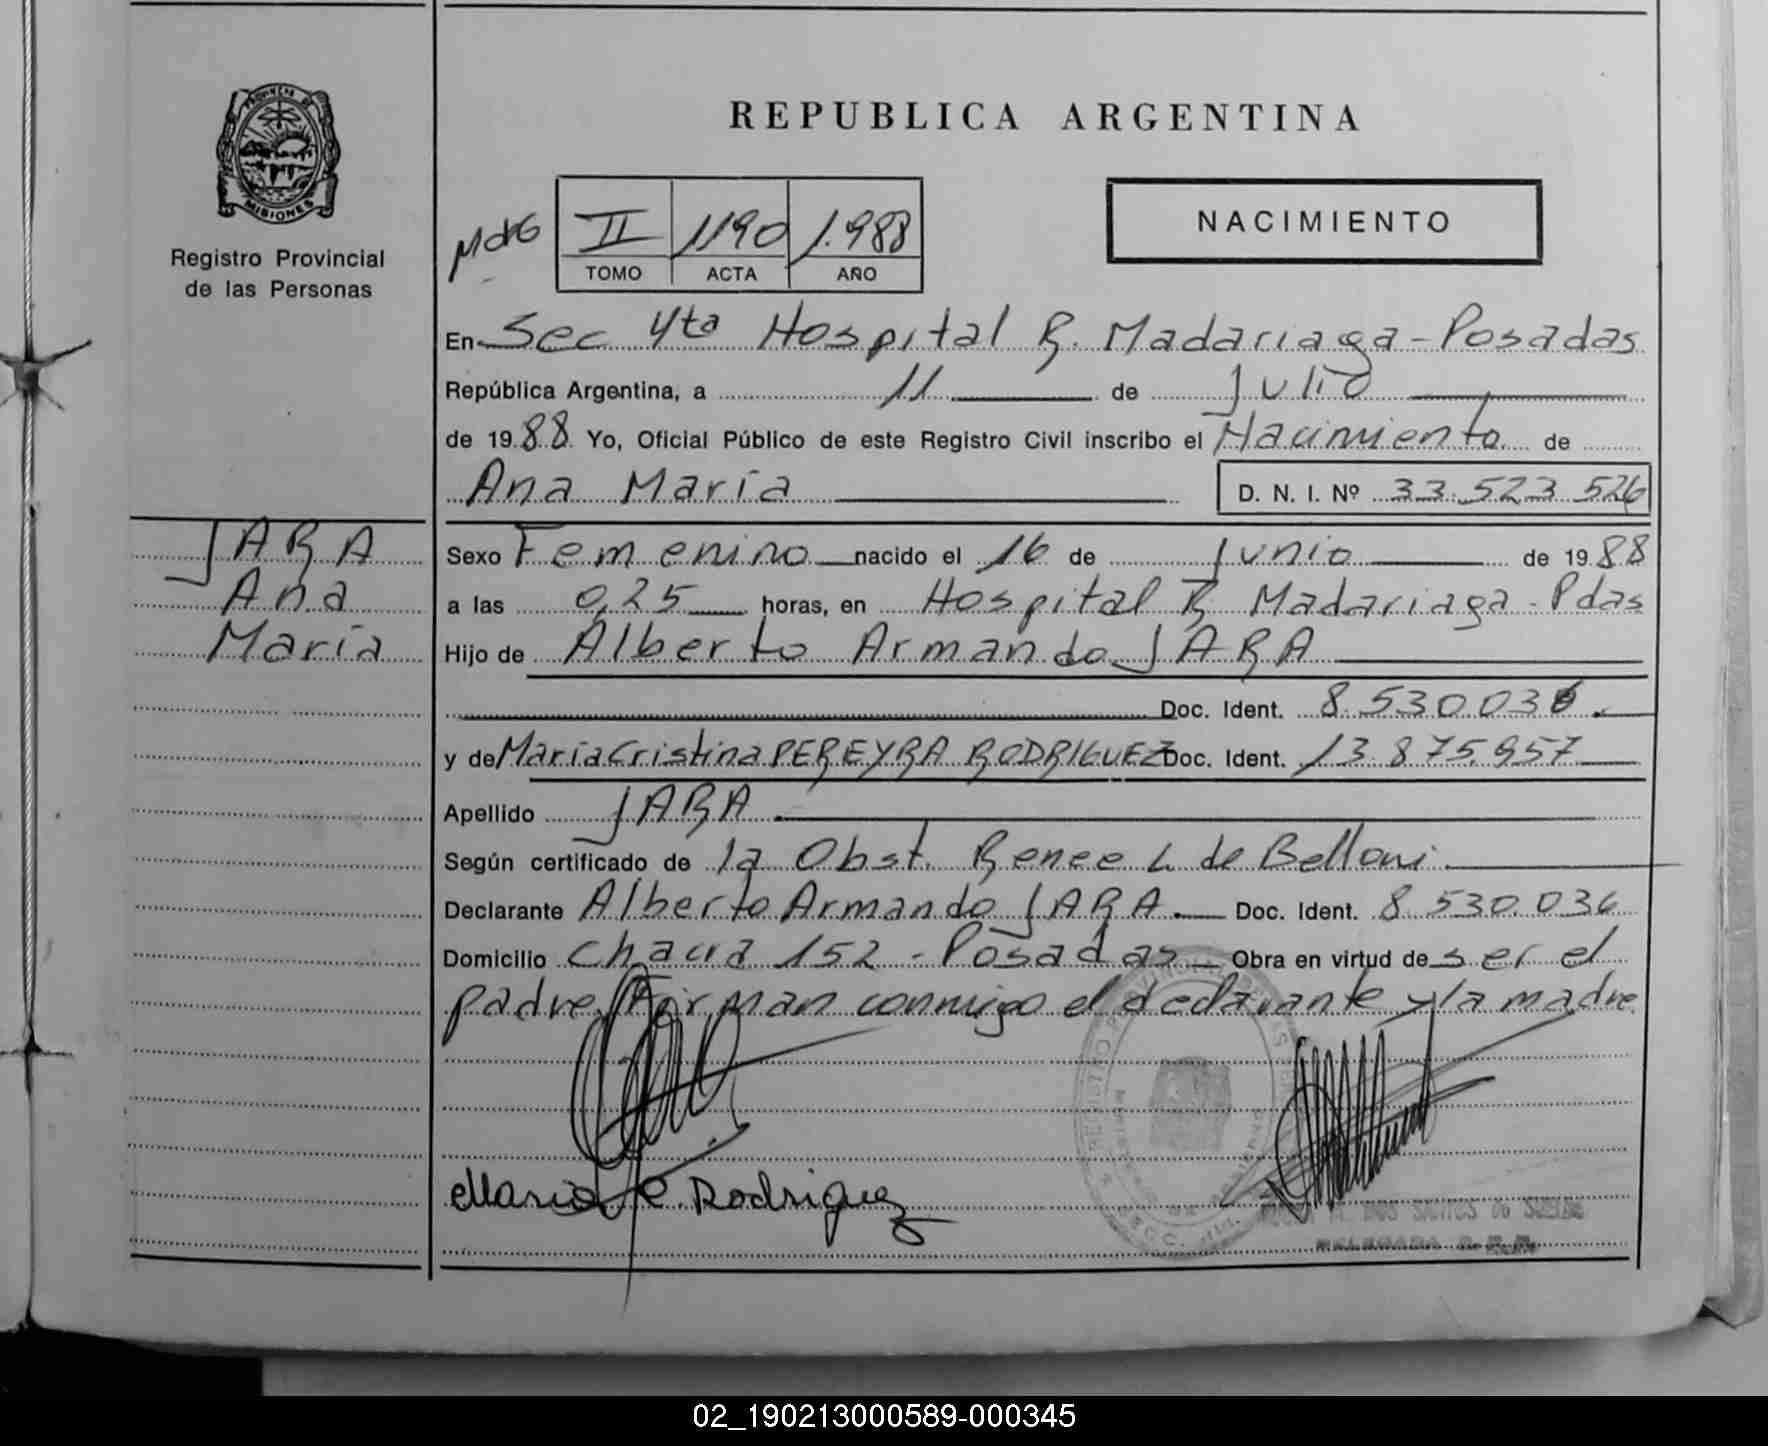 REPUBLICA ARGENTINA
PROVINCIA DE
MISIONES
Registro Provincial
de las Personas
NACIMIENTO
II 1190 1.988
TOMO ACTA AÑO
En Sec 4ta Hospital R. Madariaga - Posadas
República Argentina, a 11 de Julio
de 1988 Yo, Oficial Público de este Registro Civil inscribo el Nacimiento de
Ana María D. N. I. Nº 33.523 526
JARA
Ana
María
Sexo Femenino nacido el 16 de Junio de 1988
a las 0,25 horas, en Hospital R Madariaga - Pdas
Hijo de Alberto Armando JARA
Doc. Ident. 8.530.036.
y de María Cristina PEREYRA RODRIGUEZ Doc. Ident. 13.875.957
Apellido JARA
Según certificado de la Obst. Renee L de Belloni.
Declarante Alberto Armando JARA. Doc. Ident. 8.530.036
Domicilio Chacra 152 - Posadas Obra en virtud de ser el
padre. Firman conmigo el declarante y la madre.
Maria C. Rodriguez
DOS SANTOS de
DELEGADA
02_190213000589-000345